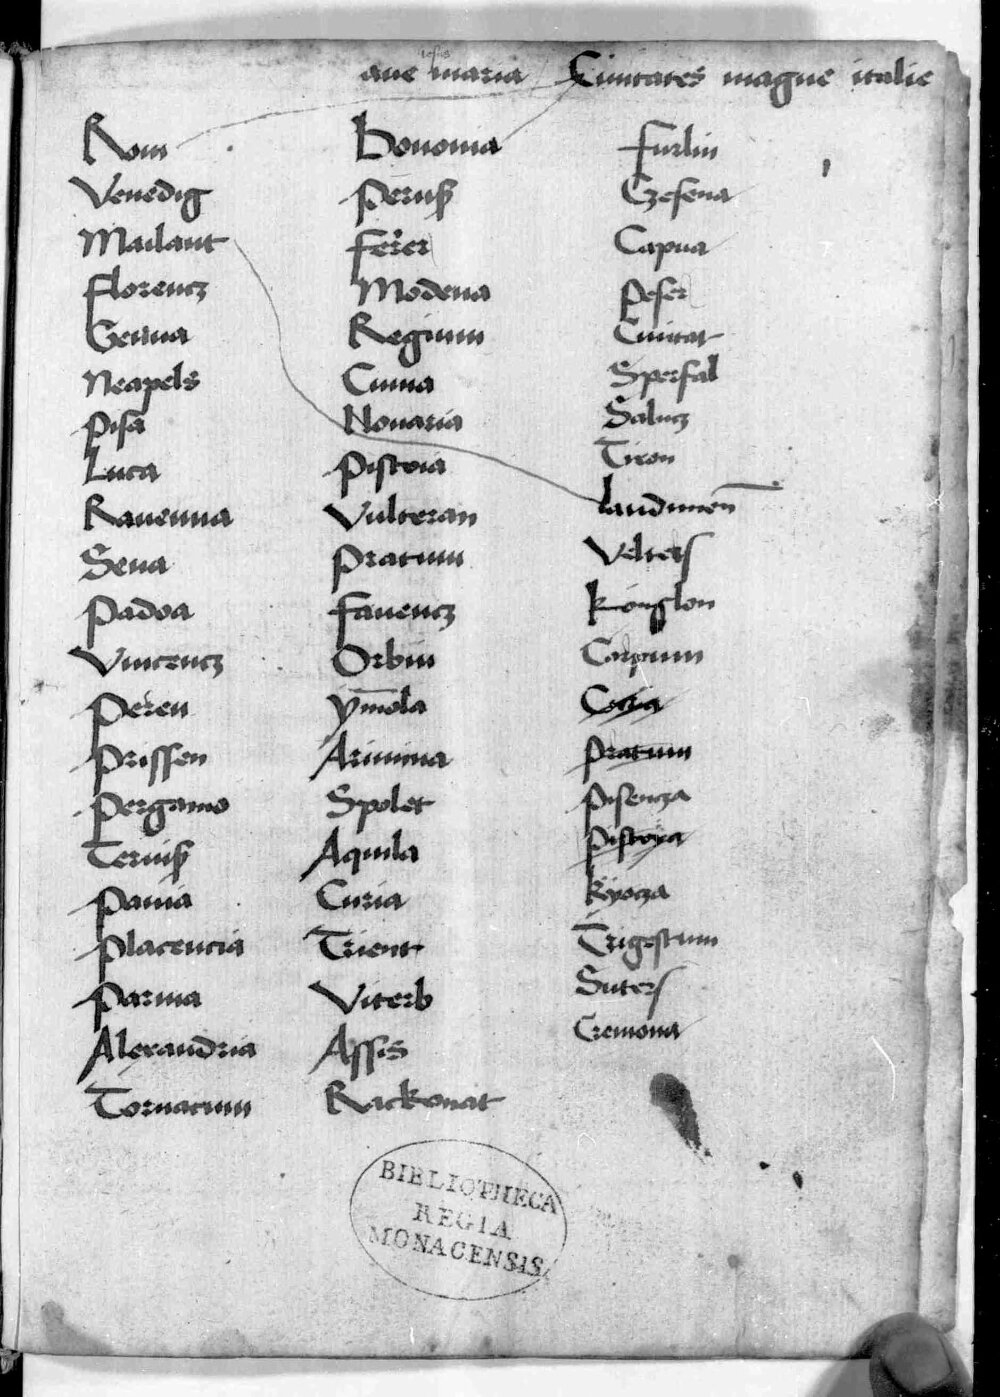 ave maria Civitates magne italie
Rom
Venedig
Mailant
Florencz
Genua
Neapels
Pisa
Luca
Ravenna
Sena
Padoa
Vincencz
Peren
Prissen
Pergamo
Tervisz
Pavia
Placencia
Parma
Alexandria
Tornacum
Bononia
Perusz
Ferer
Modena
Regium
Cuma
Novaria
Pistoia
Vulteran
Pratum
Favencz
Orbin
ymola
Arimina
Spolet
Aquila
Curia
Trient
Viterb
Assis
Rackonat
Furlin
Czesena
Capua
Peser
Civitat
Sperfal
Salucz
Tiron
laudunen
Velters
Corpium
Pratum
Pisencza
Pistoya
Trigestum
Suters
Cremona
BIBLIOTHECA
REGIA
MONACENSIS.